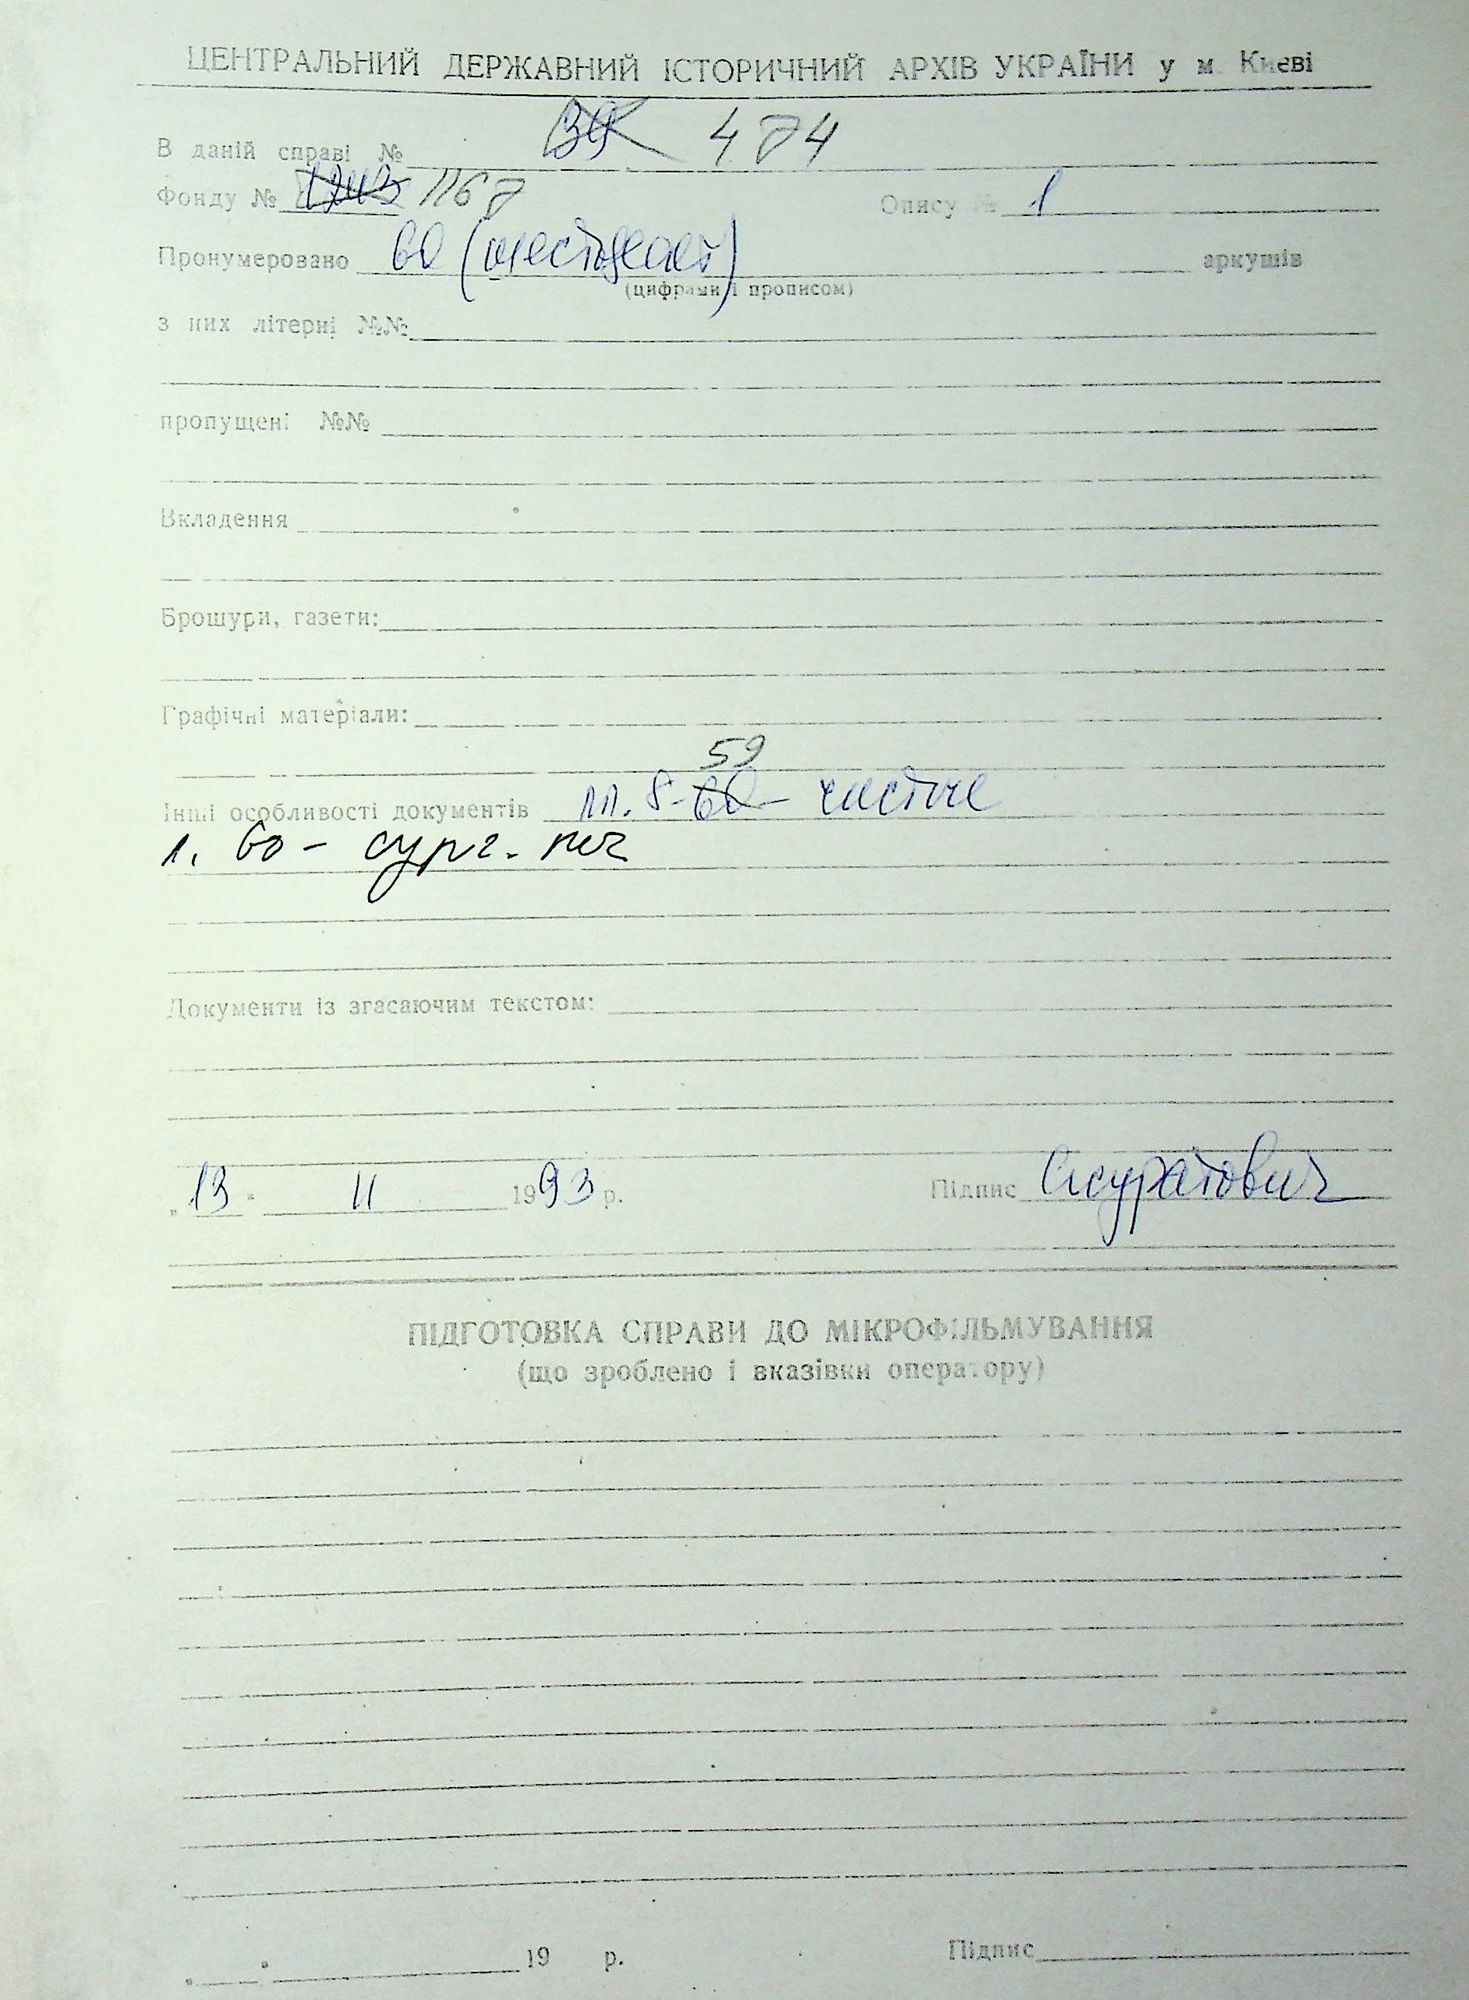 ЦЕНТРАЛЬНИЙ ДЕРЖАВНИЙ ІСТОРИЧНИЙ АРХІВ УКРАЇНИ у м. Києві
В даній справі № 39 474
Фонду № 1167 Опису № 1
Пронумеровано 60 (шестьдесят) аркушів
(цифрами і прописом)
з них літерні №№
пропущені №№
Вкладення
Брошури, газети:
Графічні матеріали:
59
Інші особливості документів лл. 8-60- чистые
л. 60 - сург. печ
Документи із згасаючим текстом:
„13" 11 1993 р. Підпис
ПІДГОТОВКА СПРАВИ ДО МІКРОФІЛЬМУВАННЯ
(що зроблено і вказівки оператору)
19 р. Підпис